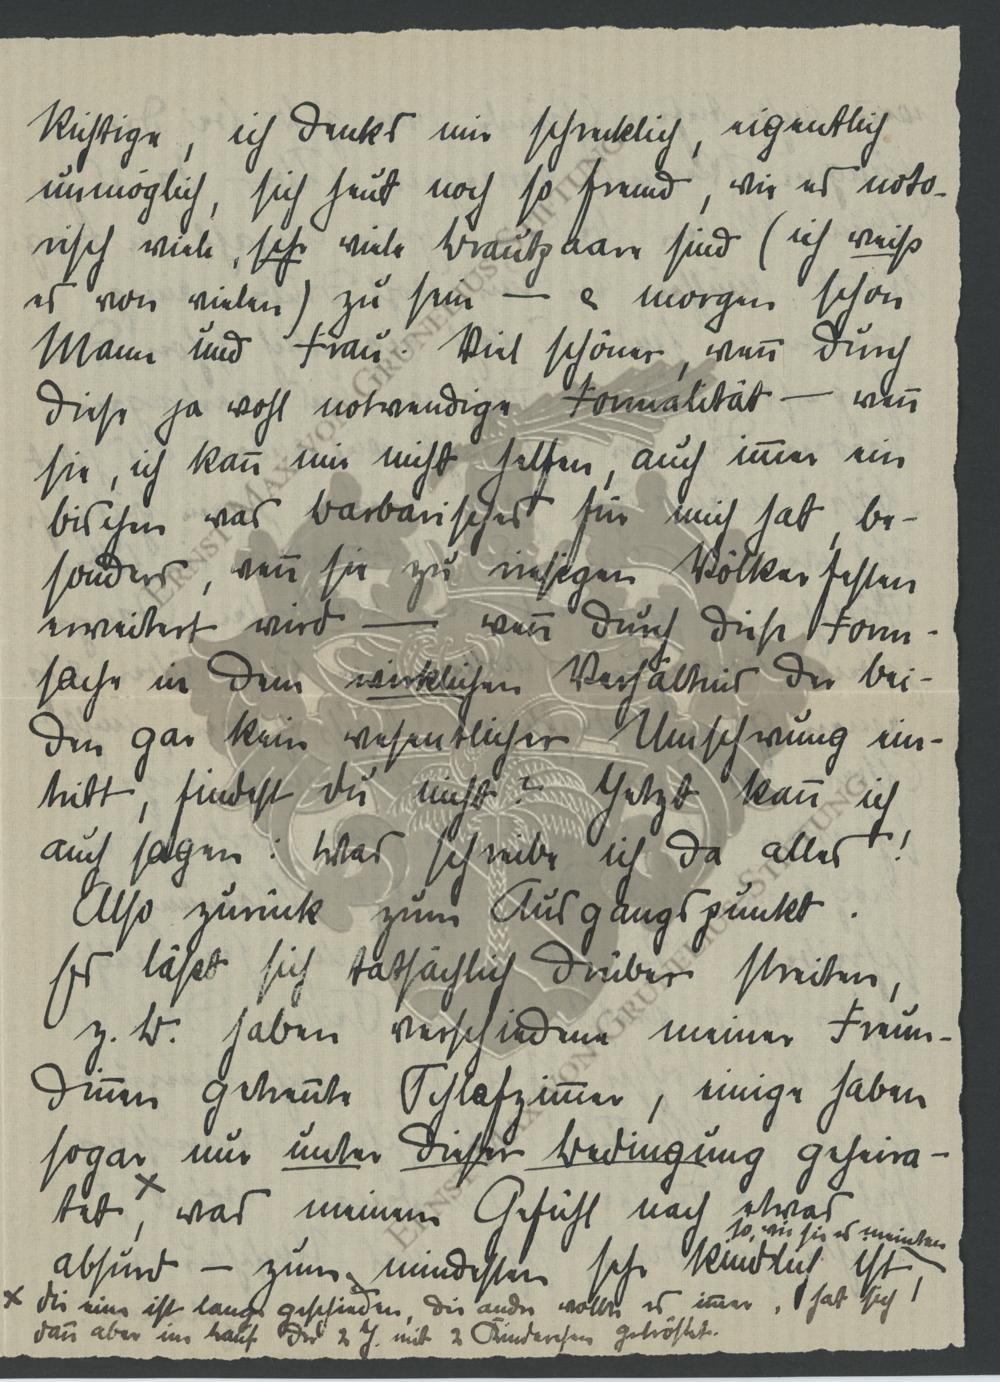 Richtige, ich denks mir schrecklich, eigentlich
unmöglich, sich heut noch so fremd, wie es noto-
risch viele, sehr viele Brautpaare sind (ich weiss
es von vielen) zu sein — & morgen schon
Mann und Frau. Viel schöner, weñ durch
diese ja wohl notwendige Formalität — weñ
sie, ich kañ mir nicht helfen, auch im̄er ein
bischen was barbarisches für mich hat, be-
sonders, weñ sie zu riesigen Völkerfesten
erweitert wird — weñ durch diese Form-
sache in dem wirklichen Verhältnis der bei-
den gar kein wesentlicher Umschwung ein-
tritt, findest du nicht? Jetzt kañ ich
auch sagen: was schreibe ich da alles!
Also zurück zum Ausgangspunkt.
Es läßt sich tatsächlich drüber streiten,
z. B. haben verschiedene meiner Freun-
diñen getreñte Schlafzim̄er, einige haben
sogar nur unter dieser Bedingung geheira-
tet ×, was meinem Gefühl nach etwas
so, wie sie es meinten
absurd — zum mindesten sehr kindlich ist,
× die eine ist längst geschieden, die andre wollte es im̄er, hat sich
dañ aber im Lauf der 2 J. mit 2 Kinderchen getröstet.
ERNST MAX VON GRUNELIUS STIFTUNG
ERNST MAX VON GRUNELIUS STIFTUNG